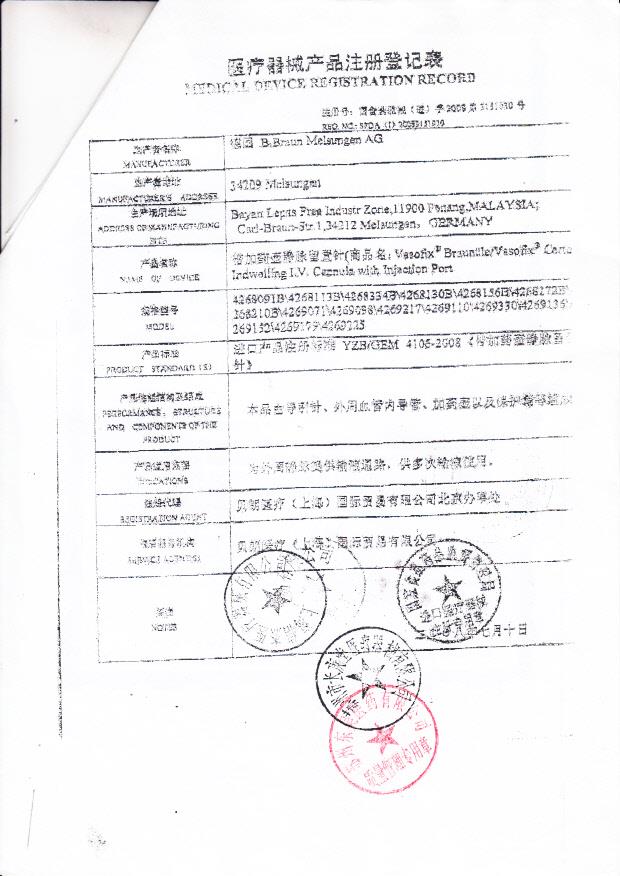 医疗器械产品注册登记表
MEDICAL DEVICE REGISTRATION RECORD
注册号：国食药监械（进）字2008第3151930号
REG. NO.: SFDA (I) 20083151930
生产者名称
MANUFACTURER
德国 B.Braun Melsungen AG
生产者地址
MANUFACTURER'S ADDRESS
34209 Melsungen
生产场所地址
ADDRESS OF MANUFACTURING
SITE
Bayan Lepas Free Industr Zone,11900 Penang,MALAYSIA;
Carl-Braun-Str.1,34212 Melsungen, GERMANY
产品名称
NAME OF DEVICE
带加药壶静脉留置针(商品名: Vasofix® Braunüle/Vasofix® Certo
Indwelling I.V. Cannula with Injection Port
规格型号
MODEL
4268091B\4268113B\4268334B\4268130B\4268156B\4268172B\
268210B\4269071\4269098\4269217\4269110\4269330\4269136
269152\4269179\4269225
产品标准
PRODUCT STANDARD (S)
进口产品注册标准 YZB/GEM 4106-2008《带加药壶静脉留
针》
产品性能结构及组成
PERFORMANCE, STRUCTURE
AND COMPONENTS OF THE
PRODUCT
本品由导引针、外周血管内导管、加药壶以及保护帽等组成
产品适用范围
INDICATIONS
为外周静脉提供输液通路，供多次输液使用。
注册代理
REGISTRATION AGENT
贝朗医疗（上海）国际贸易有限公司北京办事处
售后服务机构
SERVICE AGENCIES
贝朗医疗（上海）国际贸易有限公司
备注
NOTES
二〇〇八年七月十日